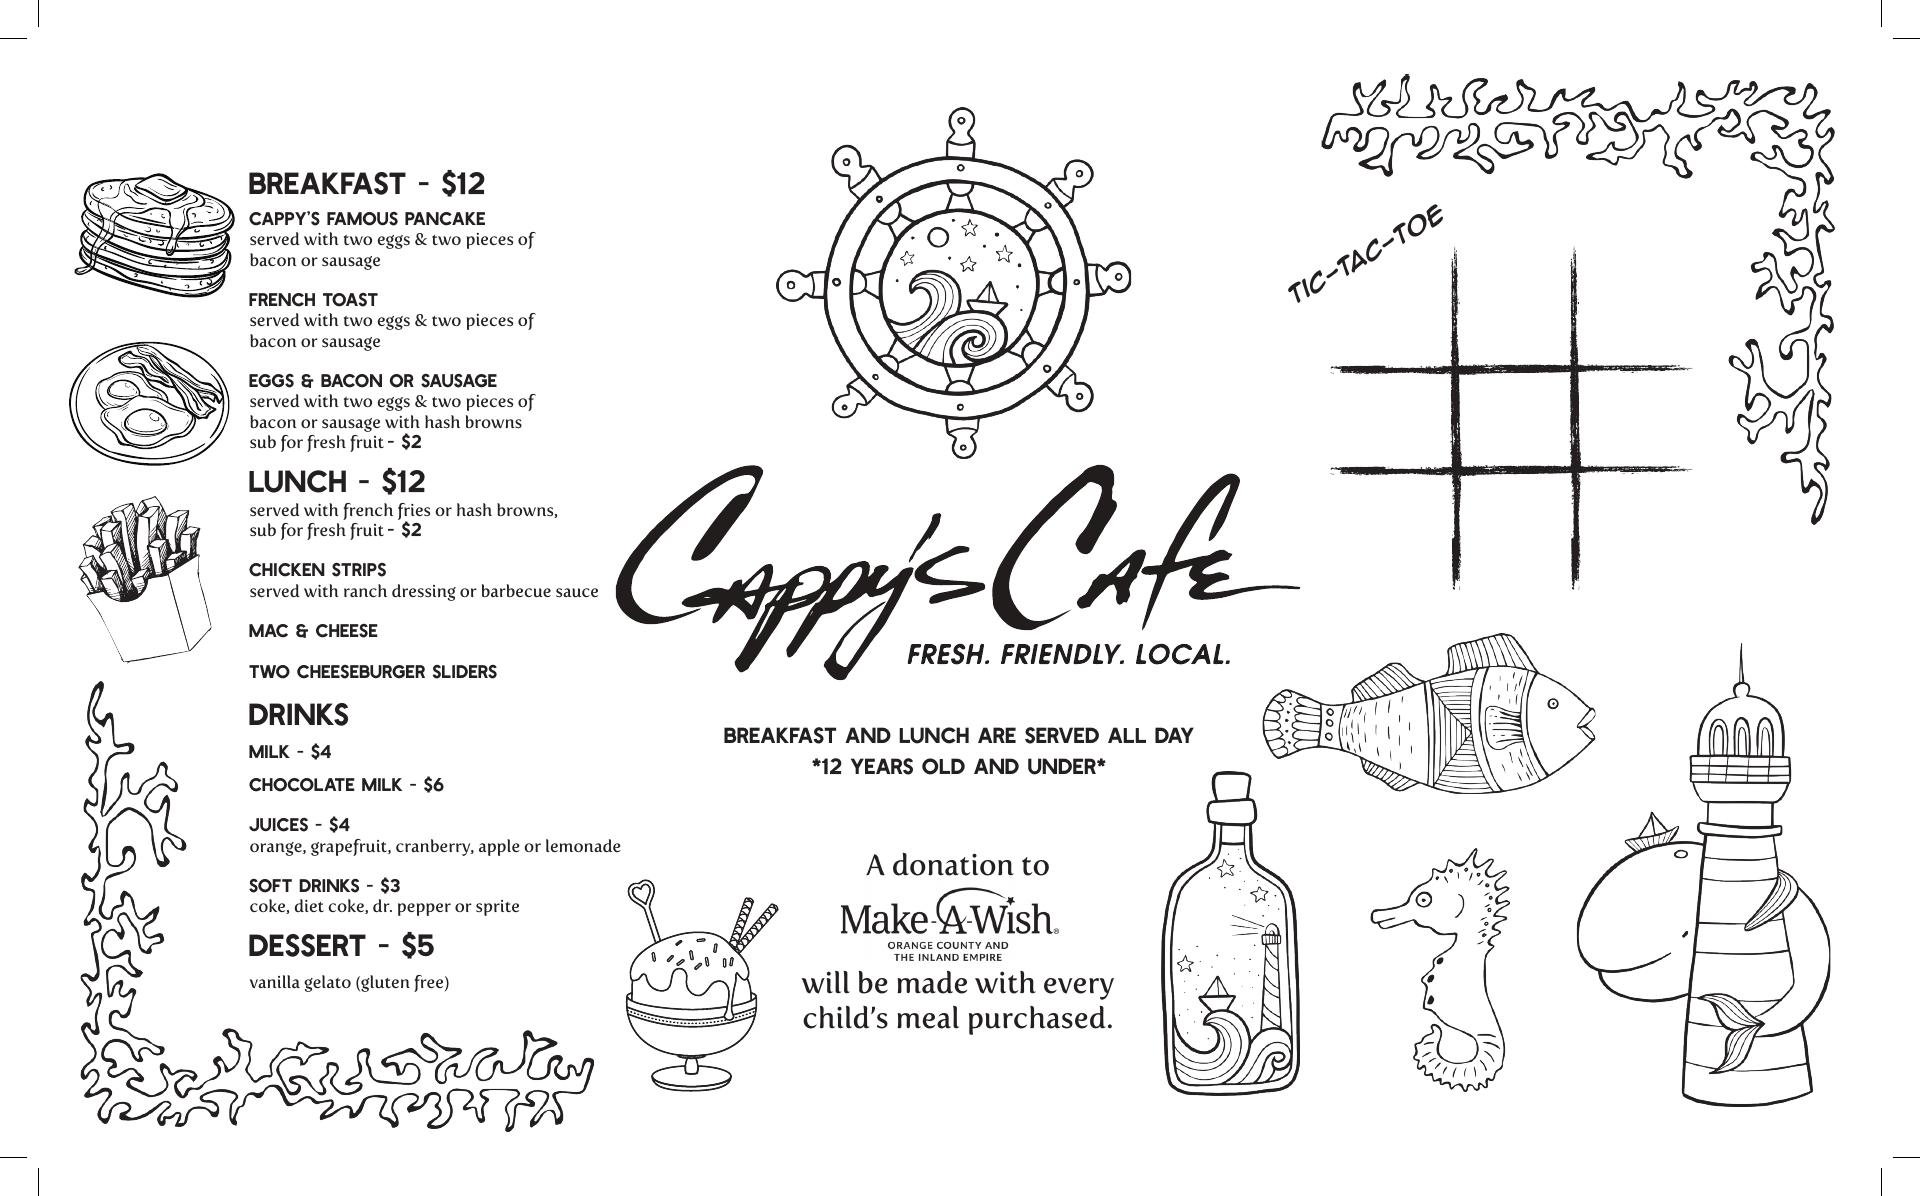 BREAKFAST - $12
CAPPY'S FAMOUS PANCAKE
served with two eggs & two pieces of
bacon or sausage
FRENCH TOAST
served with two eggs & two pieces of
bacon or sausage
EGGS & BACON OR SAUSAGE
served with two eggs & two pieces of
bacon or sausage with hash browns
sub for fresh fruit - $2
LUNCH - $12
served with french fries or hash browns,
sub for fresh fruit - $2
CHICKEN STRIPS
served with ranch dressing or barbecue sauce
MAC & CHEESE
TWO CHEESEBURGER SLIDERS
DRINKS
MILK - $4
CHOCOLATE MILK - $6
JUICES - $4
orange, grapefruit, cranberry, apple or lemonade
SOFT DRINKS - $3
coke, diet coke, dr. pepper or sprite
DESSERT - $5
vanilla gelato (gluten free)
Cappy's Cafe
FRESH. FRIENDLY. LOCAL.
BREAKFAST AND LUNCH ARE SERVED ALL DAY
*12 YEARS OLD AND UNDER*
A donation to
Make-A-Wish®
ORANGE COUNTY AND
THE INLAND EMPIRE
will be made with every
child's meal purchased.
TIC-TAC-TOE